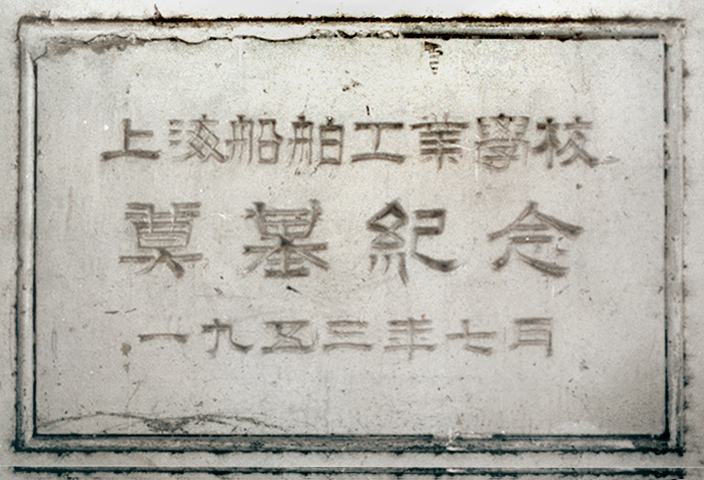 上海船舶工業學校
奠基紀念
一九五三年七月